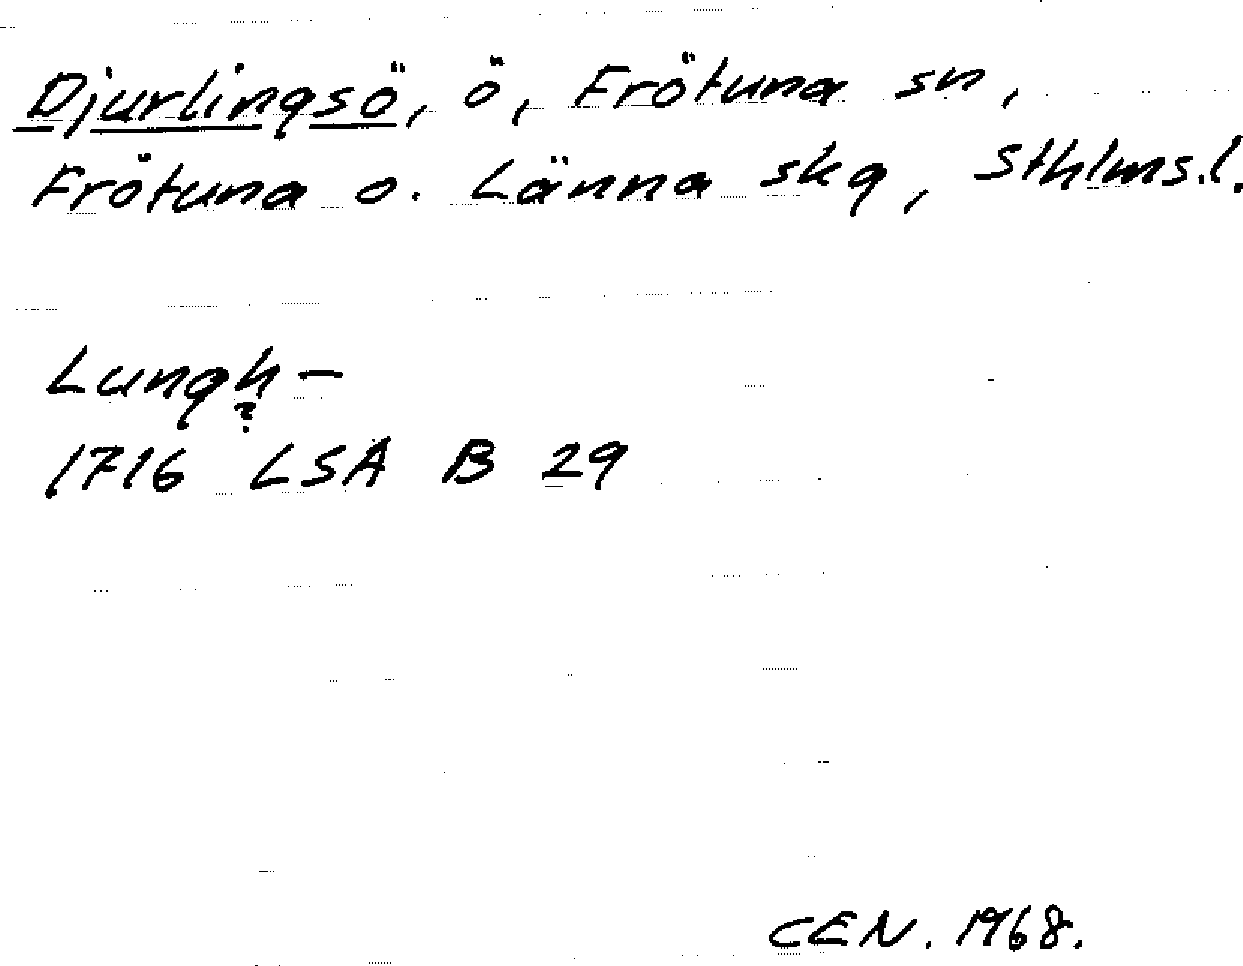 Djurlingsö, ö, Frötuna sn,
Frötuna o. Länna skg, Sthlms.l.
Lungh-
?
1716 LSA B 29
CEN. 1968.